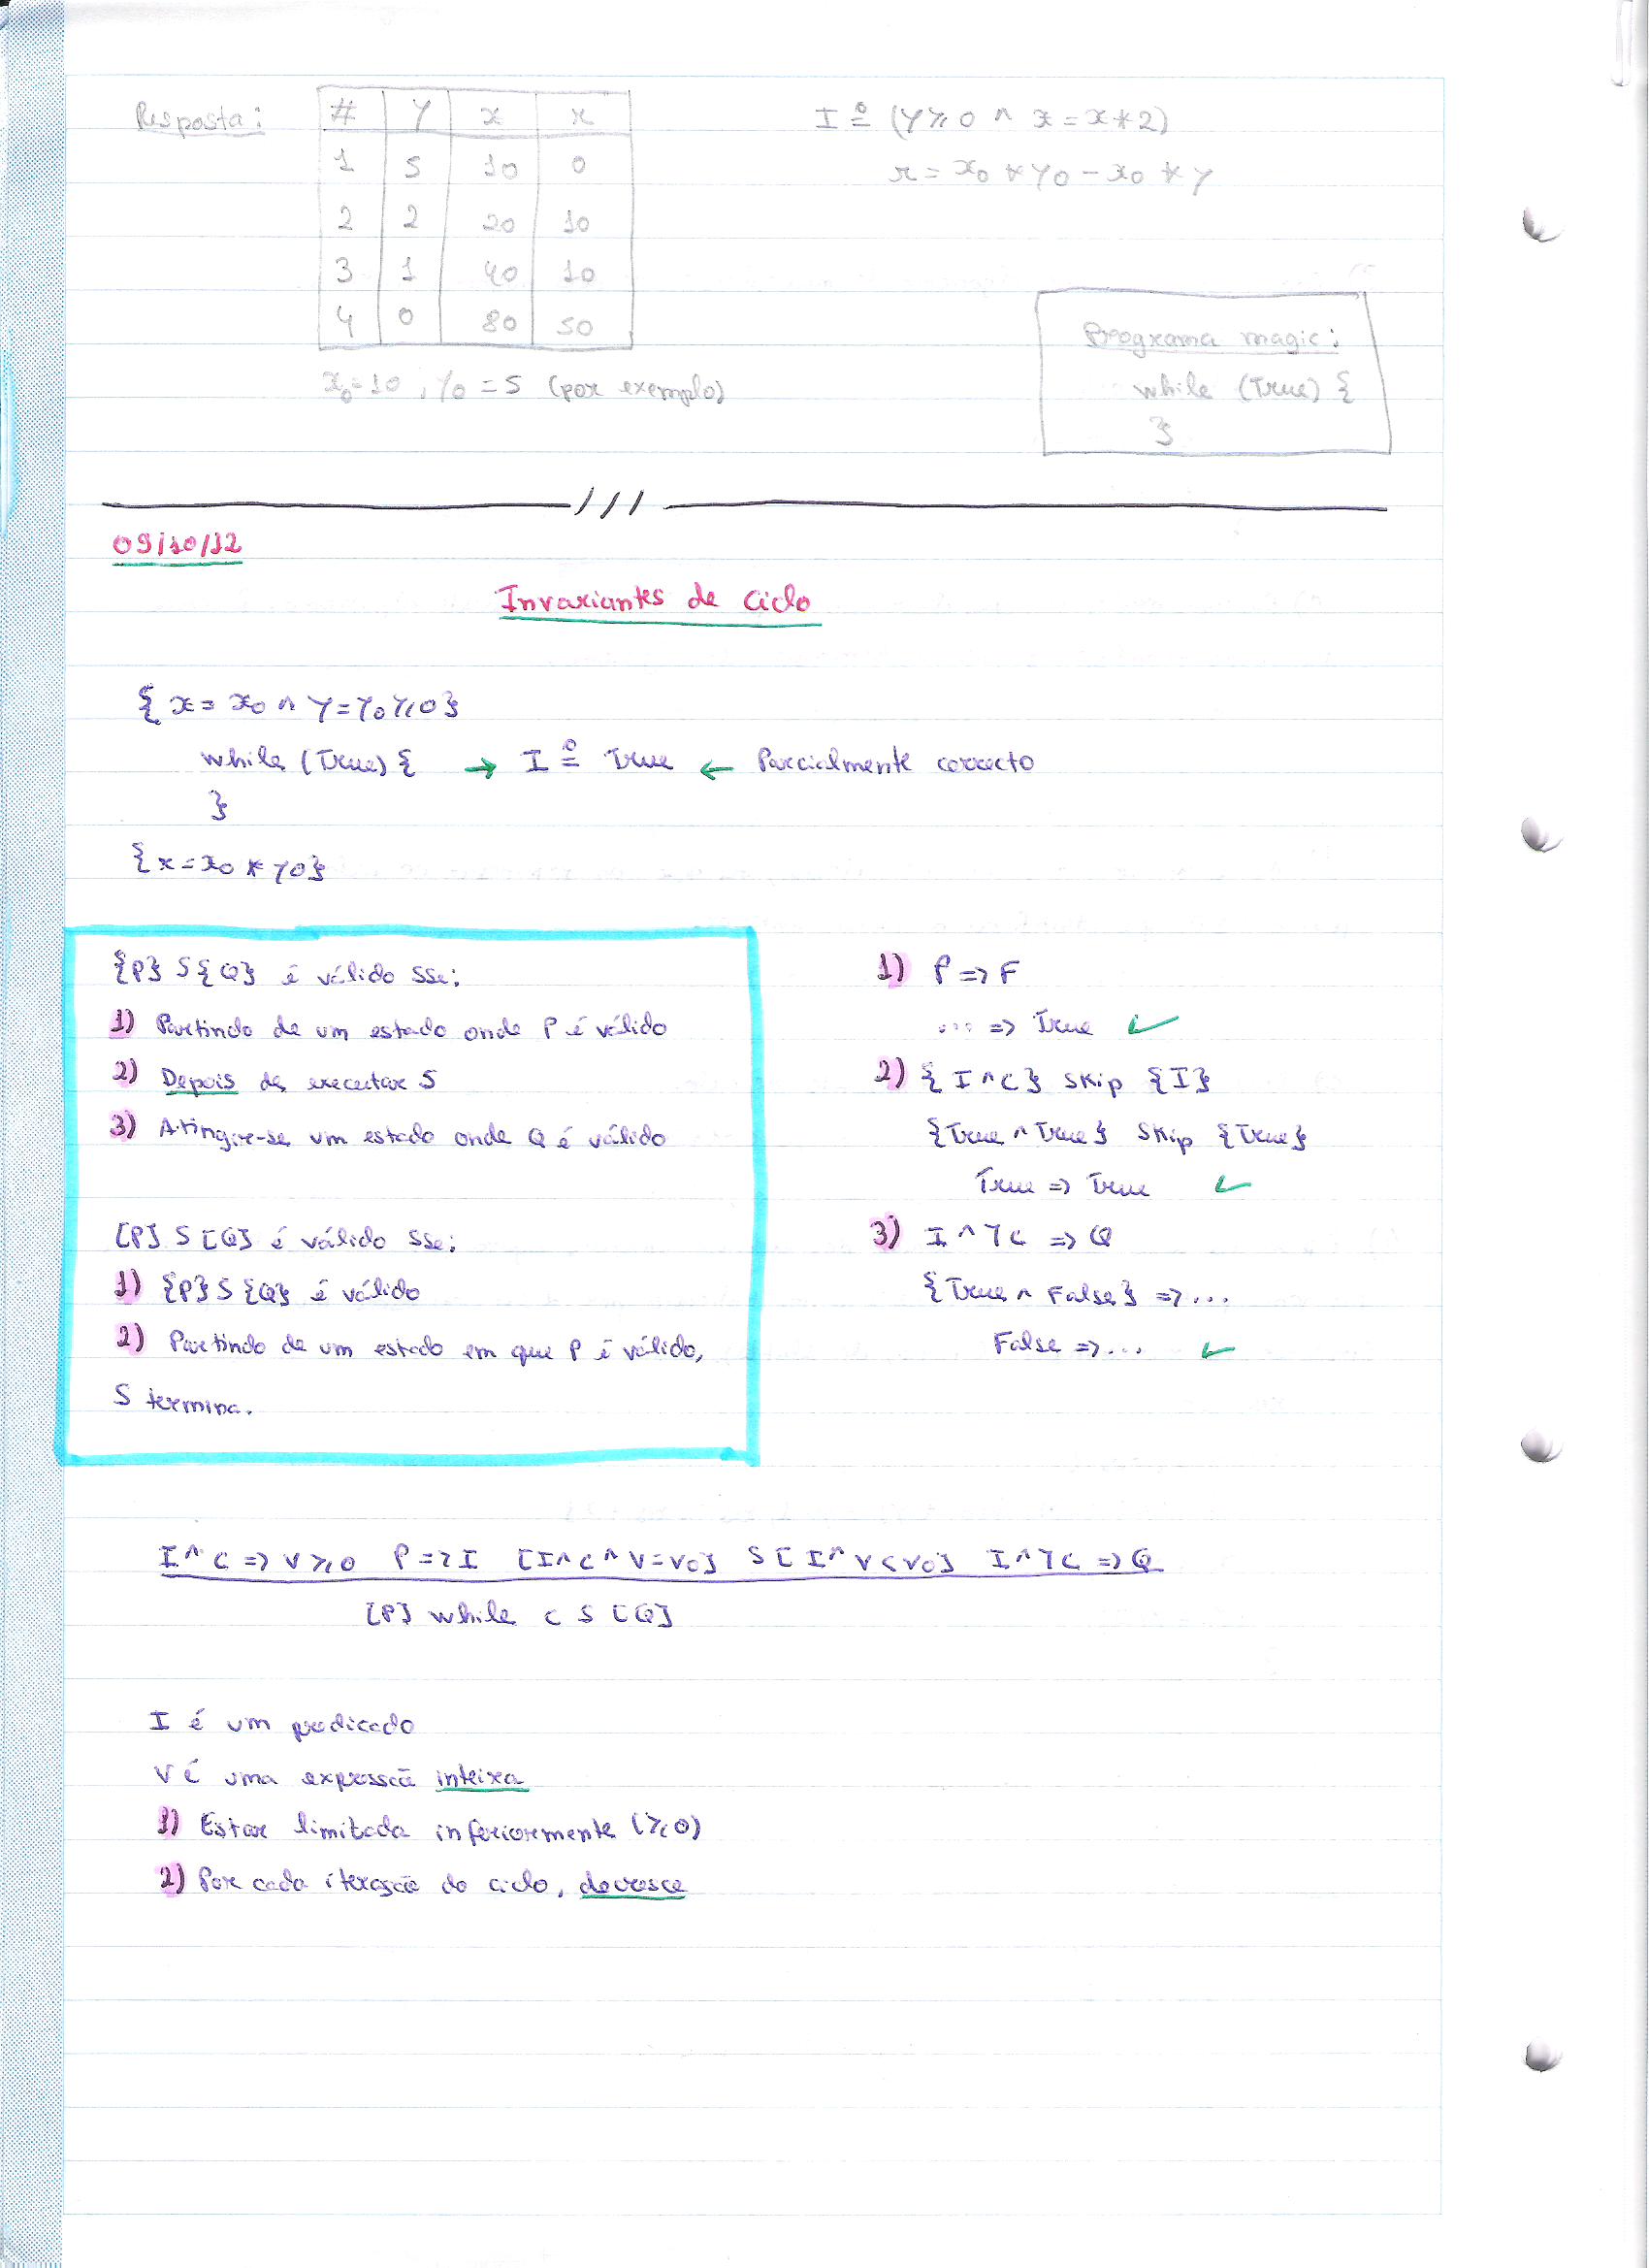 Resposta:
# y x r
1 5 10 0
2 2 20 10
3 1 40 10
4 0 80 50
x₀=10, y₀ = 5 (por exemplo)
I ≙ (y ⩾ 0 ∧ x = x * 2)
r = x₀ * y₀ - x₀ * y
Programa magic:
while (True) {
}
09/10/12
Invariantes de ciclo
{ x = x₀ ∧ y = y₀ ⩾ 0 }
while (True) { → I ≙ True ← Parcialmente correcto
}
{ r = x₀ * y₀ }
{P} S {Q} é válido sse:
1) Partindo de um estado onde P é válido
2) Depois de executar S
3) Atingir-se um estado onde Q é válido
[P] S [Q] é válido sse:
1) {P} S {Q} é válido
2) Partindo de um estado em que P é válido,
S termina.
1) P => F
... => True ✓
2) { I ∧ C } Skip { I }
{ True ∧ True } Skip { True }
True => True ✓
3) I ∧ ¬C => Q
{ True ∧ False } => ...
False => ... ✓
I ∧ C => V ⩾ 0 P => I [I ∧ C ∧ V = V₀] S [I ∧ V < V₀] I ∧ ¬C => Q
[P] while C S [Q]
I é um predicado
V é uma expressão inteira
1) Estar limitada inferiormente (⩾ 0)
2) Por cada iteração do ciclo, decresce